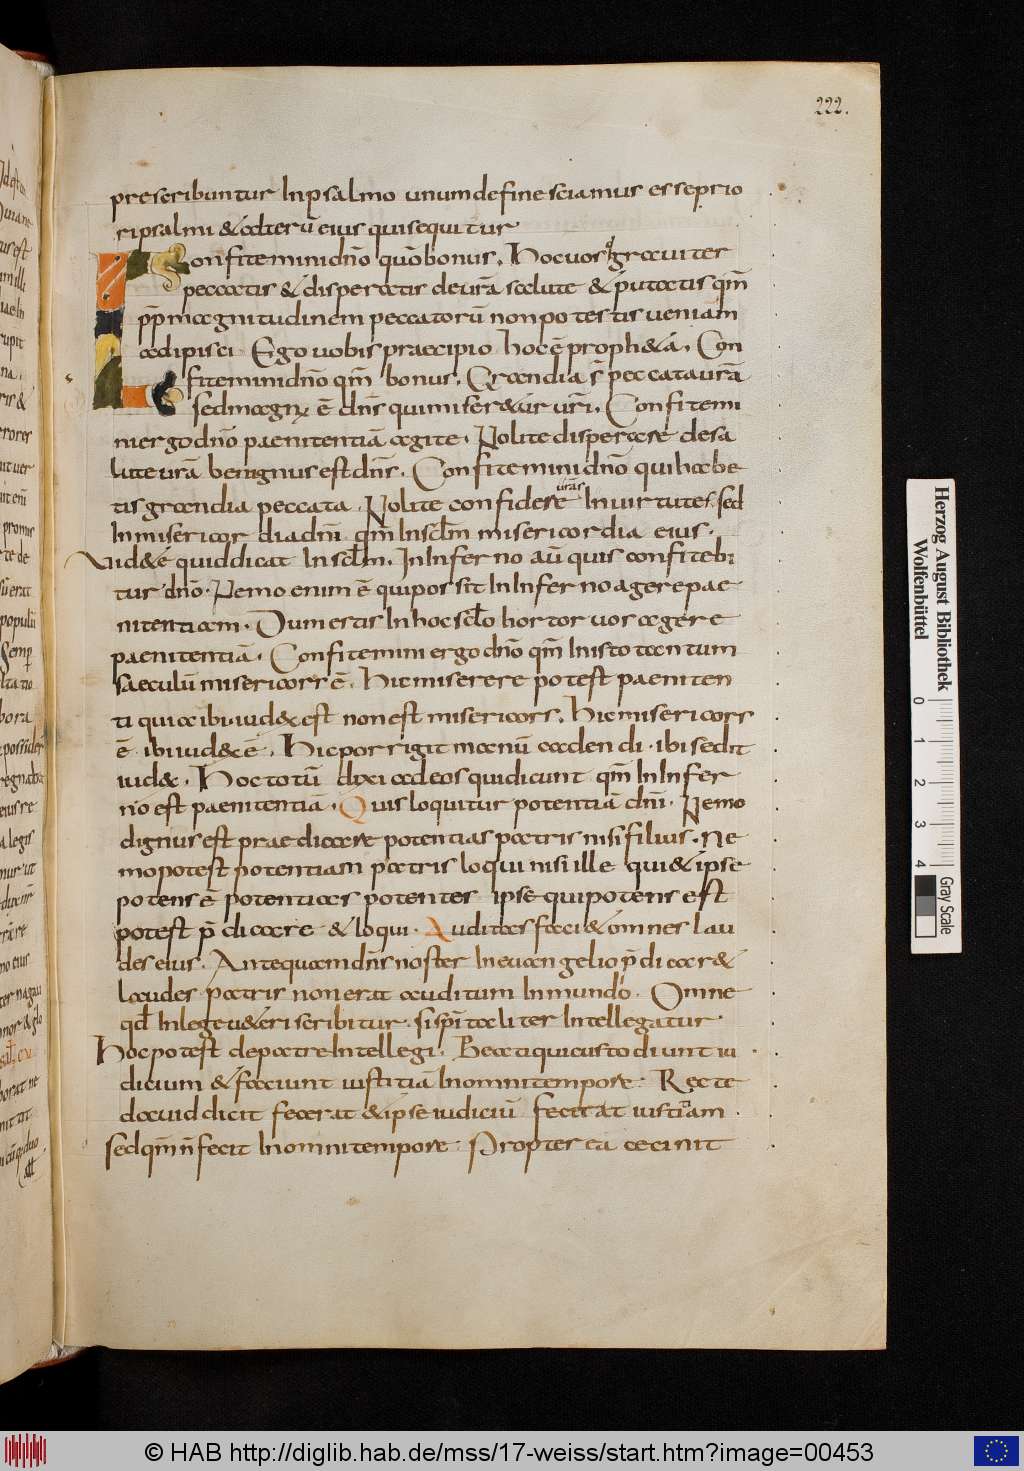 222.
prescribuntur In psalmo unum define sciamus esse prio
ris psalmi & alterū eius qui sequitur
Confitemini dnō quō bonus. Hoc uos qi grauiter
peccatis & disperatis de urā salute & putatis qm̄
pp̄ magnitudinem peccatorū non potestis ueniam
adipisci. Ego uobis praecipio hoc ē proph&a. Con
fitemini dnō qm̄ bonus. Grandia s̄ peccata urā
sed magnꝰ ē dn̄s qui miser&ur urī. Confitemi
ni ergo dnō paenitentiā agite. Nolite disperare de sa
lute urā benignus est dn̄s. Confitemini dnō qui habe
tis grandia peccata. Nolite confidere In uirtutes sed
urās
In misericordia dn̄i qm̄ In sclm̄ misericordia eius.
Uid&e quid dicat In sclm̄. In Inferno aū quis confitebi
tur dnō. Nemo enim ē qui possit In Inferno agere pae
nitentiam. Dum estis In hoc sclo hortor uos agere
paenitentiā. Confitemini ergo dnō qm̄ In isto tantum
saeculū misericors ē. Hic miserere potest paeniten
ti quia ibi iud&x est non est misericors. Hic misericors
ē ibi iud&x ē. Hic porrigit manū cadenti. ibi sedit
iud&x. Hoc totū dixi ad eos qui dicunt qm̄ In Infer
no est paenitentiā. Quis loquitur potentiā dn̄i. Nemo
dignus est praedicare potentias patris nisi filius. Ne
mo potest potentiam patris loqui nisi ille qui & ipse
potens ē potentias potentes ipse qui potens est
potest p̄dicare & loqui. Auditas faci& omnes lau
des eius. Antequam dn̄s noster In euangelio p̄dicar&
laudes patris non erat auditum In mundo. Omne
qd̄ In lege u&eri scribitur. si sp̄italiter Intellegatur.
Hoc potest de patre Intellegi. Beati qui custodiunt iu
dicium & faciunt iustitiā In omni tempore. Recte
dauid dicit fecerat & ipse iudiciū fecerat iustitiam.
sed qm̄ n̄ fecit In omni tempore. Propterea cecinit
Herzog August Bibliothek
Wolfenbüttel
0 1 2 3 4
Gray Scale
© HAB http://diglib.hab.de/mss/17-weiss/start.htm?image=00453